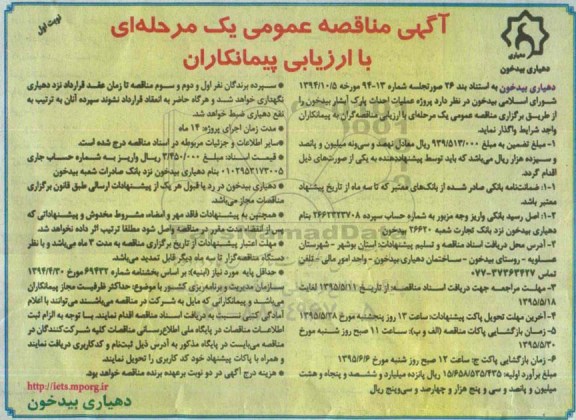 نوبت اول
آگهی مناقصه عمومی یک مرحله‌ای
با ارزیابی پیمانکاران
دهیاری
دهیاری بیدخون
دهیاری بیدخون به استناد بند ۲۶ صورتجلسه شماره ۱۳-۹۴ مورخه ۱۳۹۴/۱۰/۵
شورای اسلامی بیدخون در نظر دارد پروژه عملیات احداث پارک آبشار بیدخون را
از طریق برگزاری مناقصه عمومی یک مرحله‌ای با ارزیابی مناقصه‌گران به پیمانکاران
واجد شرایط واگذار نماید.
۱- مبلغ تضمین به مبلغ ۹۳۹/۵۱۳/۰۰۰ ریال معادل نهصد و سی‌ونه میلیون و پانصد
و سیزده هزار ریال می‌باشد که باید توسط پیشنهاددهنده به یکی از صورت‌های ذیل
اقدام گردد.
۱-۱: ضمانتنامه بانکی صادر شده از بانک‌های معتبر که تا سه ماه از تاریخ پیشنهاد
معتبر باشد.
۱-۲: اصل رسید بانکی واریز وجه مزبور به شماره حساب سپرده ۲۶۶۲۳۲۳۷۰۸ بنام
دهیاری بیدخون نزد بانک تجارت شعبه ۲۶۶۲۰ بیدخون
۲- آدرس محل دریافت اسناد مناقصه و تسلیم پیشنهادات: استان بوشهر - شهرستان
عسلویه - روستای بیدخون - ساختمان دهیاری بیدخون - واحد امور مالی - تلفن
تماس ۳۷۳۶۳۴۲۷-۰۷۷
۳- مهلت مراجعه جهت دریافت اسناد مناقصه: از تاریخ ۱۳۹۵/۵/۱۱ لغایت
۱۳۹۵/۵/۱۸
۴- آخرین مهلت تحویل پاکت پیشنهادات: ساعت ۱۳ روز پنجشنبه مورخ ۱۳۹۵/۵/۲۸
۵- زمان بازگشایی پاکات مناقصه (الف و ب): ساعت ۱۱ صبح روز شنبه مورخ
۱۳۹۵/۵/۳۰
۶- زمان بازگشایی پاکت ج: ساعت ۱۲ صبح روز شنبه مورخ ۱۳۹۵/۶/۶
مبلغ برآورد اولیه: ۱۵/۶۵۸/۵۳۵/۴۳۵ ریال پانزده میلیارد و ششصد و پنجاه و هشت
میلیون و پانصد و سی و پنج هزار و چهارصد و سی‌وپنج ریال
* سپرده برندگان نفر اول و دوم و سوم مناقصه تا زمان عقد قرارداد نزد دهیاری
نگهداری خواهد شد و هرگاه حاضر به انعقاد قرارداد نشوند سپرده آنان به ترتیب به
نفع دهیاری ضبط خواهد شد.
* مدت زمان اجرای پروژه: ۱۴ ماه
* سایر اطلاعات و جزئیات مربوطه در اسناد مناقصه درج شده است.
* قیمت اسناد: مبلغ ۳/۴۵۰/۰۰۰ ریال واریز به شماره حساب جاری
۰۱۰۲۹۵۲۱۷۳۰۰۵ بنام دهیاری بیدخون نزد بانک صادرات شعبه بیدخون
* دهیاری بیدخون در رد یا قبول هر یک از پیشنهادات ارسالی طبق قانون برگزاری
مناقصات مجاز می‌باشد.
* همچنین به پیشنهادات فاقد مهر و امضاء، مشروط مخدوش و پیشنهاداتی که
پس از انقضاء مدت مقرر در مناقصه واصل شود مطلقا ترتیب اثر داده نخواهد شد.
* مهلت اعتبار پیشنهادات از تاریخ برگزاری مناقصه به مدت ۳ ماه می‌باشد و با نظر
دستگاه مناقصه‌گزار تا سه ماه دیگر قابل تمدید می‌باشد.
* حداقل پایه مورد نیاز (ابنیه): بر اساس بخشنامه شماره ۶۹۴۳۲ مورخ ۱۳۹۴/۴/۳۰
سازمان مدیریت و برنامه‌ریزی کشور با موضوع: حداکثر ظرفیت مجاز پیمانکاران
می‌باشد و پیمانکارانی که مایل به شرکت در مناقصه می‌باشند می‌توانند با اعلام
آمادگی کتبی نسبت به دریافت اسناد مناقصه اقدام نمایند. با توجه به الزام ثبت
اطلاعات مناقصات در پایگاه ملی اطلاع‌رسانی مناقصات کلیه شرکت‌کنندگان در
مناقصه می‌بایست در پایگاه مذکور به آدرس ذیل ثبت‌نام و کدکاربری دریافت نمایند
و همراه با پاکات پیشنهاد خود کد کاربری را تحویل نمایند.
* هزینه درج آگهی در دو نوبت برعهده برنده مناقصه خواهد بود.
http://iets.mporg.ir
دهیاری بیدخون